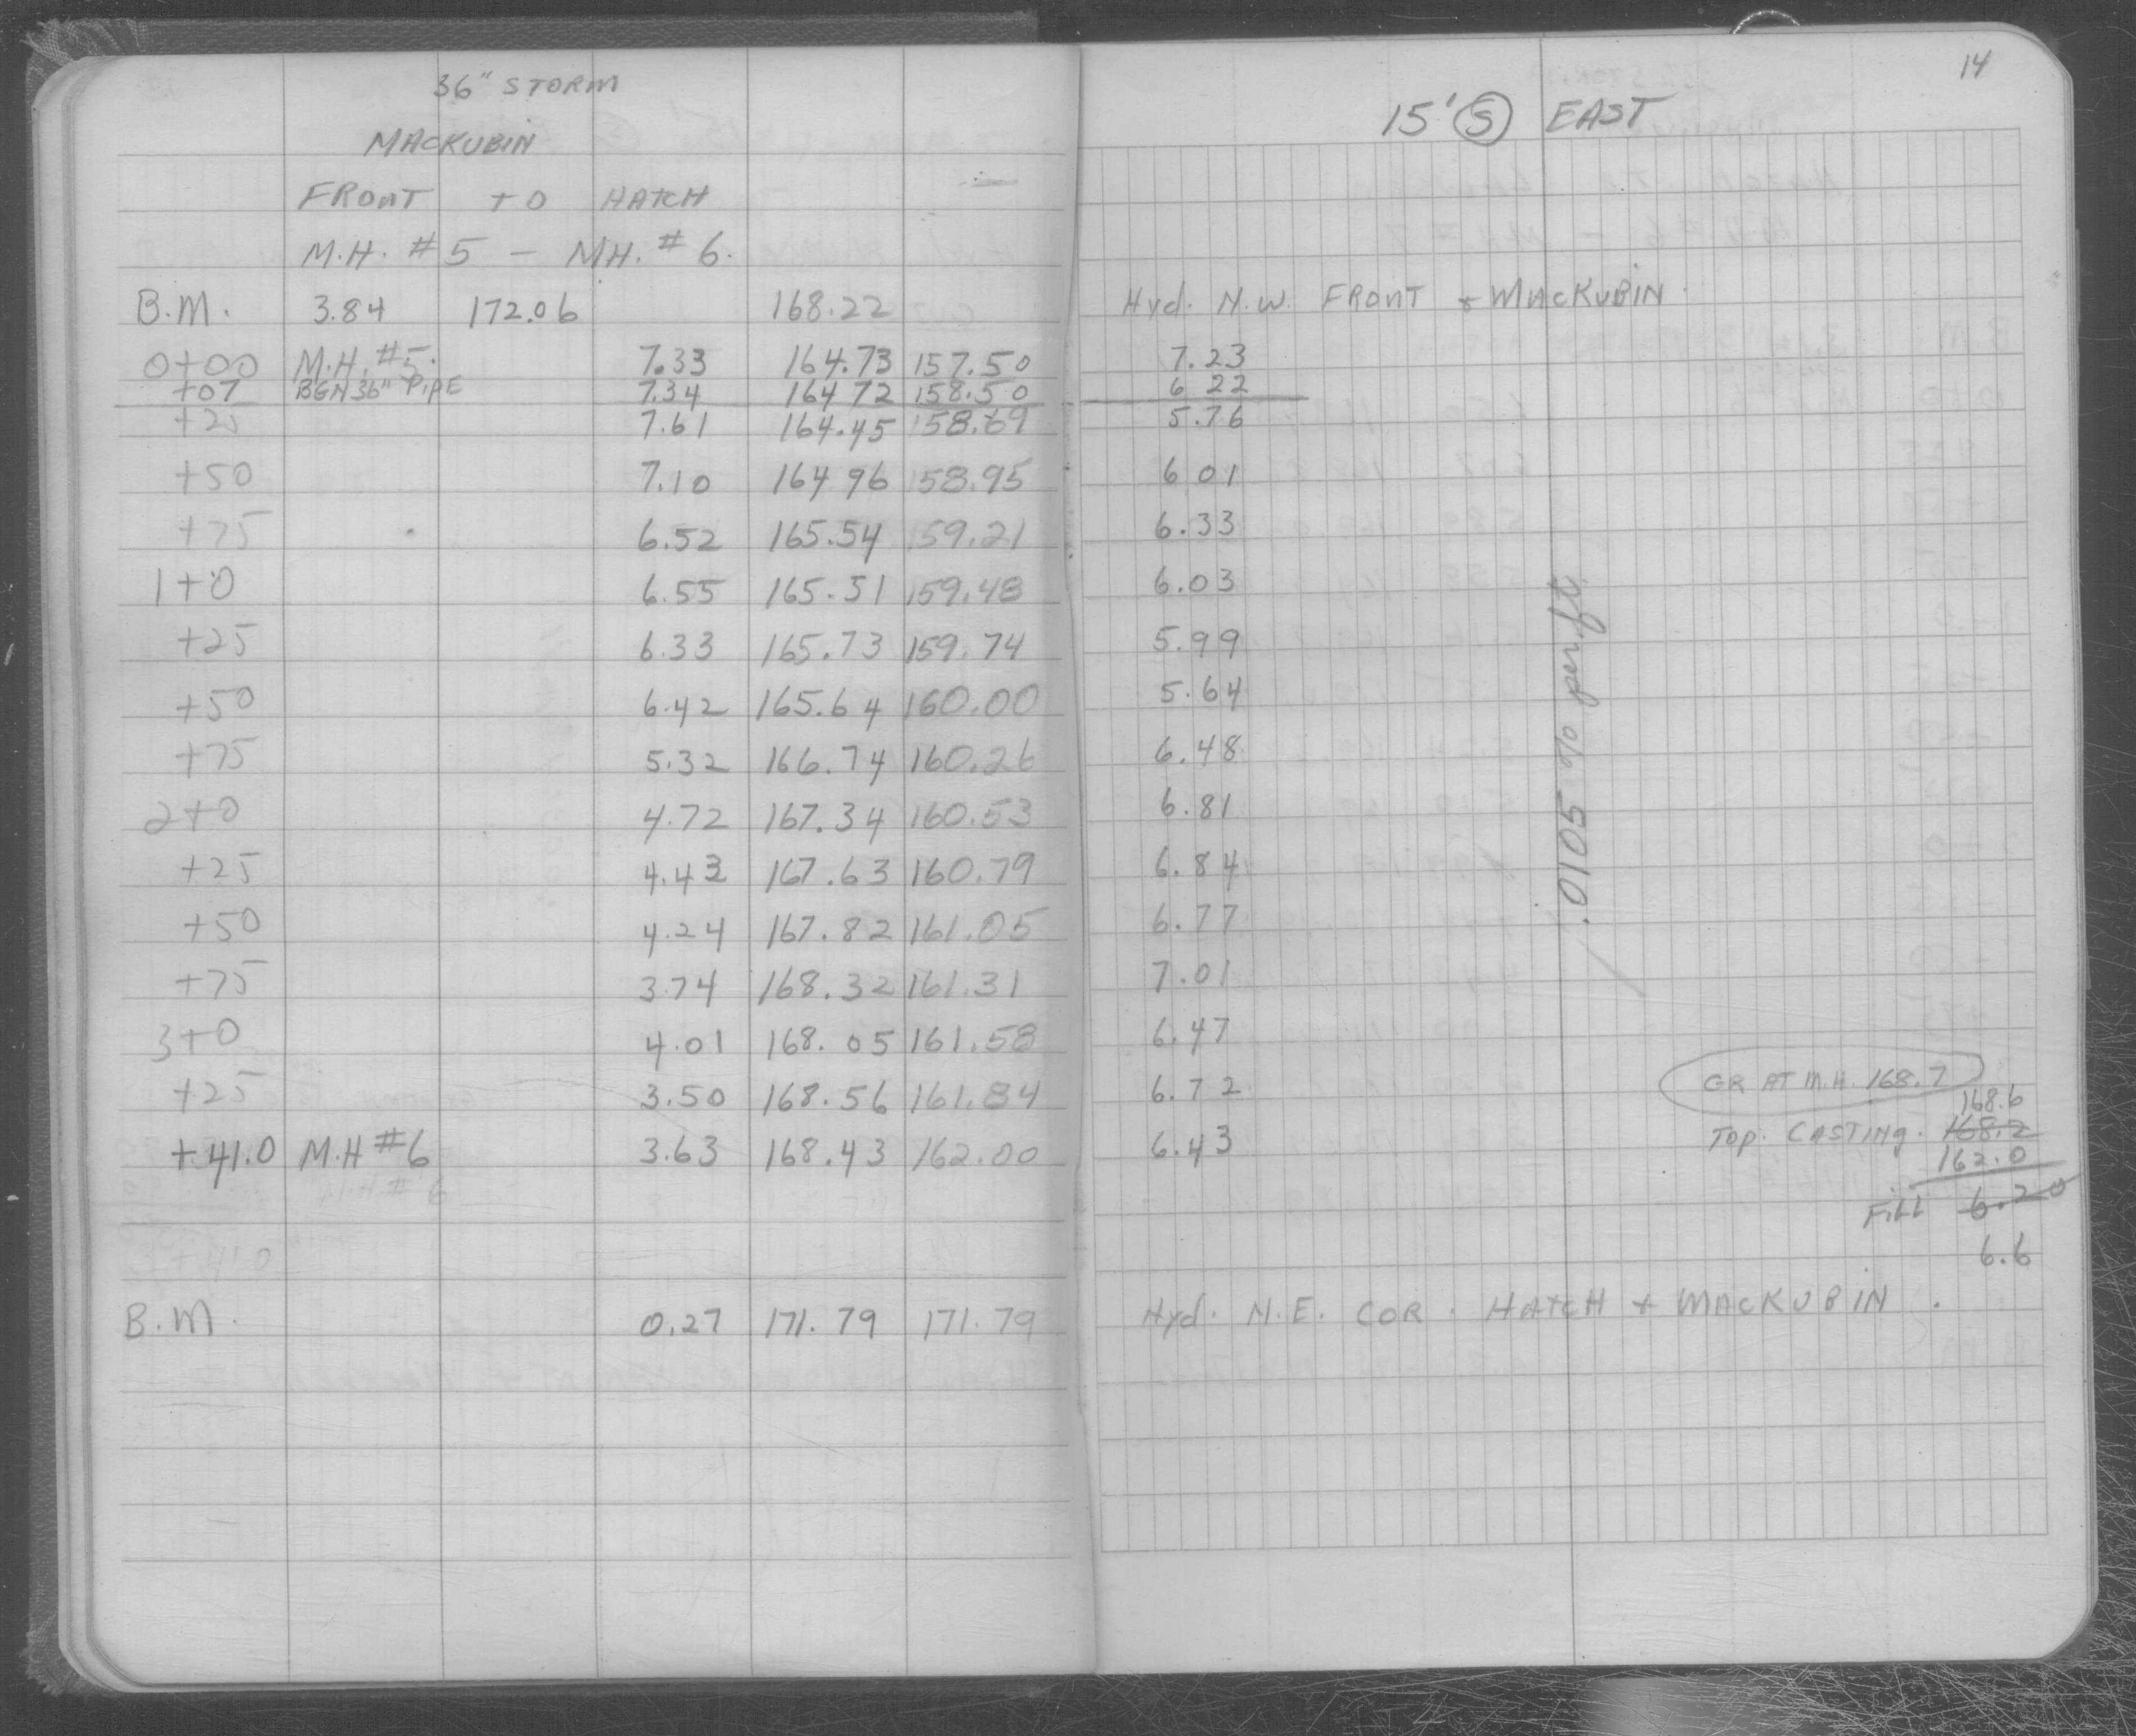 14
36" STORM
MACKUBIN
15' Ⓢ EAST
FRONT TO HATCH
M.H. #5 - MH. #6.
B.M. 3.84 172.06 168.22 Hyd. N.W. FRONT + MACKUBIN.
0+00 M.H. #5. 7.33 164.73 157.50 7.23
+07 BGN 36" PIPE 7.34 164 72 158.50 6 22
+25 7.61 164.45 158.69 5.76
+50 7.10 164 96 158.95 6 01
+75 6.52 165.54 159.21 6.33
1+0 6.55 165.51 159.48 6.03
+25 6.33 165.73 159.74 5.99
+50 6.42 165.64 160.00 5.64
+75 5.32 166.74 160.26 6.48
2+0 4.72 167.34 160.53 6.81
+25 4.43 167.63 160.79 6.84
+50 4.24 167.82 161.05 6.77
+75 3.74 168.32 161.31 7.01
3+0 4.01 168.05 161.58 6.47
+25 3.50 168.56 161.84 6.72
+41.0 M.H #6 3.63 168.43 162.00 6.43
.0105 % per.ft.
GR AT M.H. 168.7
168.6
TOP. CASTING. 168.2
162.0
FILL 6.20
6.6
B.M. 0.27 171.79 171.79 Hyd. N.E. COR. HATCH + MACKUBIN.